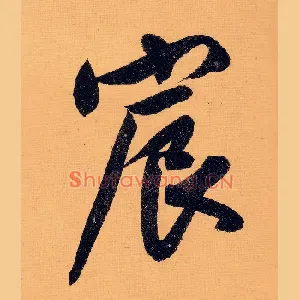 宸
Shufawang.CN